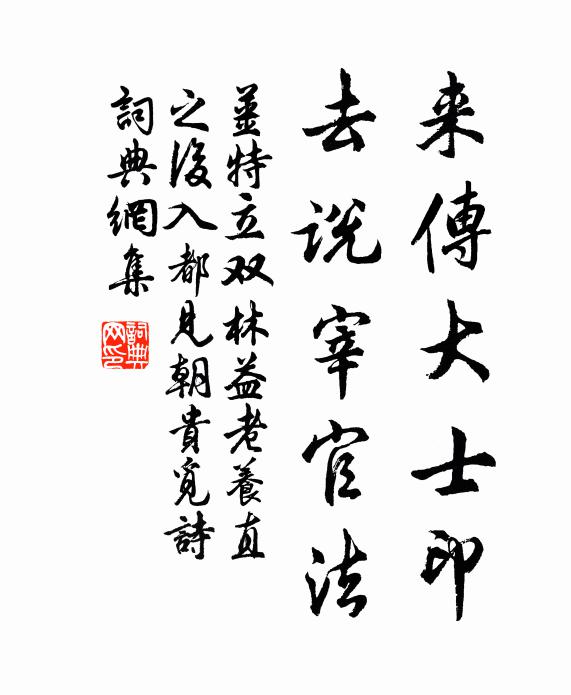 来傳大士印
去説宰官法
姜特立双林益老養直
之後入都見朝貴覓詩
詞典網集
詞典網印